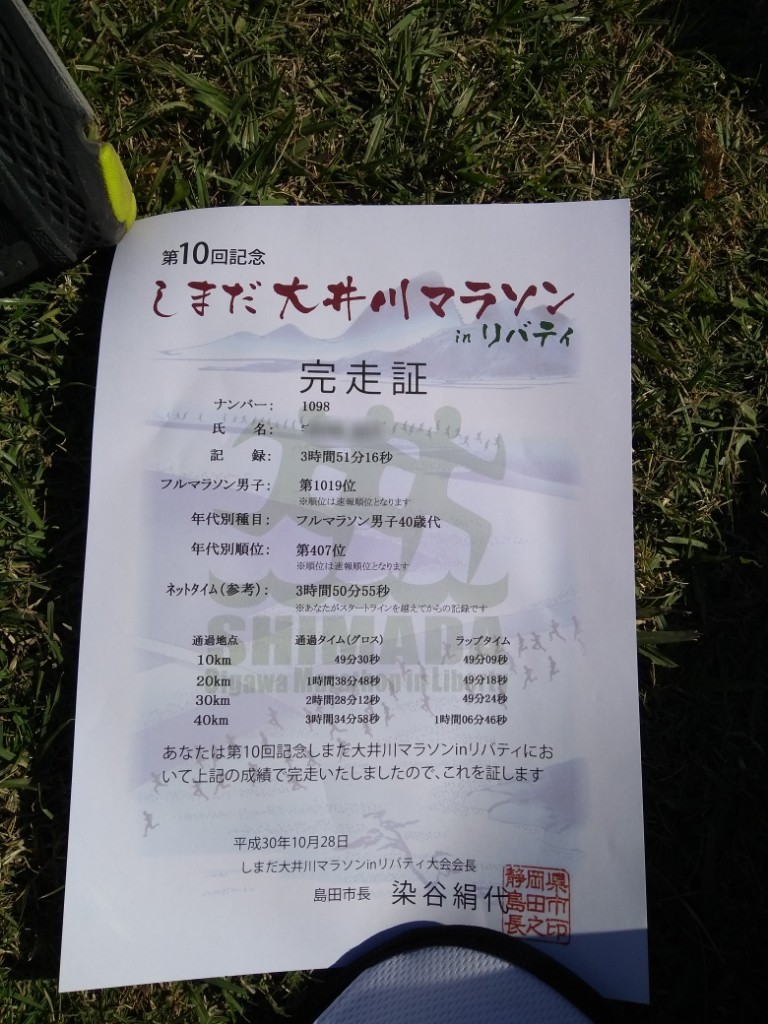 第10回記念
しまだ大井川マラソン
in リバティ
完走証
ナンバー： 1098
氏　名：
記　録： 3時間51分16秒
フルマラソン男子： 第1019位
※順位は速報順位となります
年代別種目： フルマラソン男子40歳代
年代別順位： 第407位
※順位は速報順位となります
ネットタイム(参考)： 3時間50分55秒
※あなたがスタートラインを越えてからの記録です
通過地点 通過タイム(グロス) ラップタイム
10km 49分30秒 49分09秒
20km 1時間38分48秒 49分18秒
30km 2時間28分12秒 49分24秒
40km 3時間34分58秒 1時間06分46秒
SHIMADA
Oigawa Marathon in Liberty
あなたは第10回記念しまだ大井川マラソンinリバティにお
いて上記の成績で完走いたしましたので、これを証します
平成30年10月28日
しまだ大井川マラソンinリバティ大会会長
島田市長 染谷絹代
静岡県島田市長之印